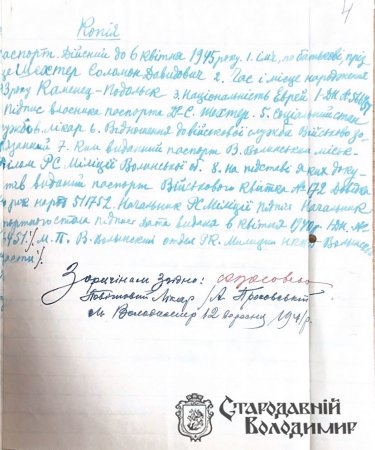 4
Копія
аспорт. Дійсний до 6 квітня 1945 року. 1. імя, по батькові прізви
ще Шехтер Соломон Давидович 2. Час і місце народження
року Каменец-Подольск 3. Національність Еврей
Підпис власника паспорта Д-С. Шехтер. 5. Соціальний стан
службов. лікар 6. Відношення до військової служби Військово зо
7. Ким виданий паспорт В.Волынским міськ-
ілом РС. Міліції Волынської О. 8. на підставі яких доку-
тів виданий паспорт Військового квитка № 172
карт 51752. Начальник РС Міліції підпис Начальник
портного стола підпис Дата видана 6 квітня 1940 р.
М.П. В-Волынский отдел РК. Милиции НКВД Волынск
ласти
Зоригіналом Згідно:
Повітовий Лікар /А. Проковський
м. Володимир 12 вересня 1941 р.
СТАРОДАВНІЙ
ВОЛОДИМИР